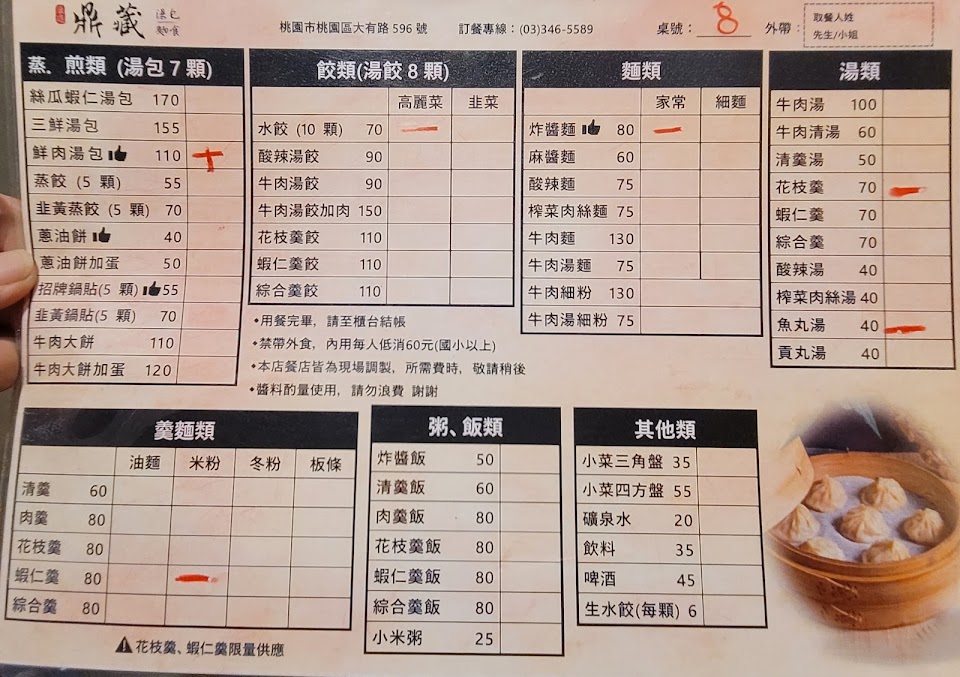 鼎藏 湯包 麵食
桃園市桃園區大有路 596 號 訂餐專線：(03)346-5589 桌號：8 外帶： 取餐人姓 先生/小姐
蒸．煎類 (湯包7顆)
絲瓜蝦仁湯包 170
三鮮湯包 155
鮮肉湯包 110
蒸餃 (5 顆) 55
韭黃蒸餃 (5 顆) 70
蔥油餅 40
蔥油餅加蛋 50
招牌鍋貼(5 顆) 55
韭黃鍋貼(5 顆) 70
牛肉大餅 110
牛肉大餅加蛋 120
餃類(湯餃 8 顆)
高麗菜 韭菜
水餃 (10 顆) 70
酸辣湯餃 90
牛肉湯餃 90
牛肉湯餃加肉 150
花枝羹餃 110
蝦仁羹餃 110
綜合羹餃 110
•用餐完畢，請至櫃台結帳
•禁帶外食，內用每人低消60元(國小以上)
•本店餐店皆為現場調製，所需費時，敬請稍後
•醬料酌量使用，請勿浪費 謝謝
麵類
家常 細麵
炸醬麵 80
麻醬麵 60
酸辣麵 75
榨菜肉絲麵 75
牛肉麵 130
牛肉湯麵 75
牛肉細粉 130
牛肉湯細粉 75
湯類
牛肉湯 100
牛肉清湯 60
清羹湯 50
花枝羹 70
蝦仁羹 70
綜合羹 70
酸辣湯 40
榨菜肉絲湯 40
魚丸湯 40
貢丸湯 40
羹麵類
油麵 米粉 冬粉 板條
清羹 60
肉羹 80
花枝羹 80
蝦仁羹 80
綜合羹 80
花枝羹、蝦仁羹限量供應
粥、飯類
炸醬飯 50
清羹飯 60
肉羹飯 80
花枝羹飯 80
蝦仁羹飯 80
綜合羹飯 80
小米粥 25
其他類
小菜三角盤 35
小菜四方盤 55
礦泉水 20
飲料 35
啤酒 45
生水餃(每顆) 6